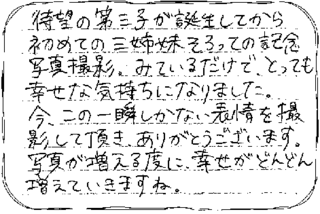 待望の第三子が誕生してから
初めての三姉妹そろっての記念
写真撮影。みているだけで、とっても
幸せな気持ちになりました。
今、この一瞬しかない表情を撮
影して頂き、ありがとうございます。
写真が増える度に、幸せがどんどん
増えていきますね。